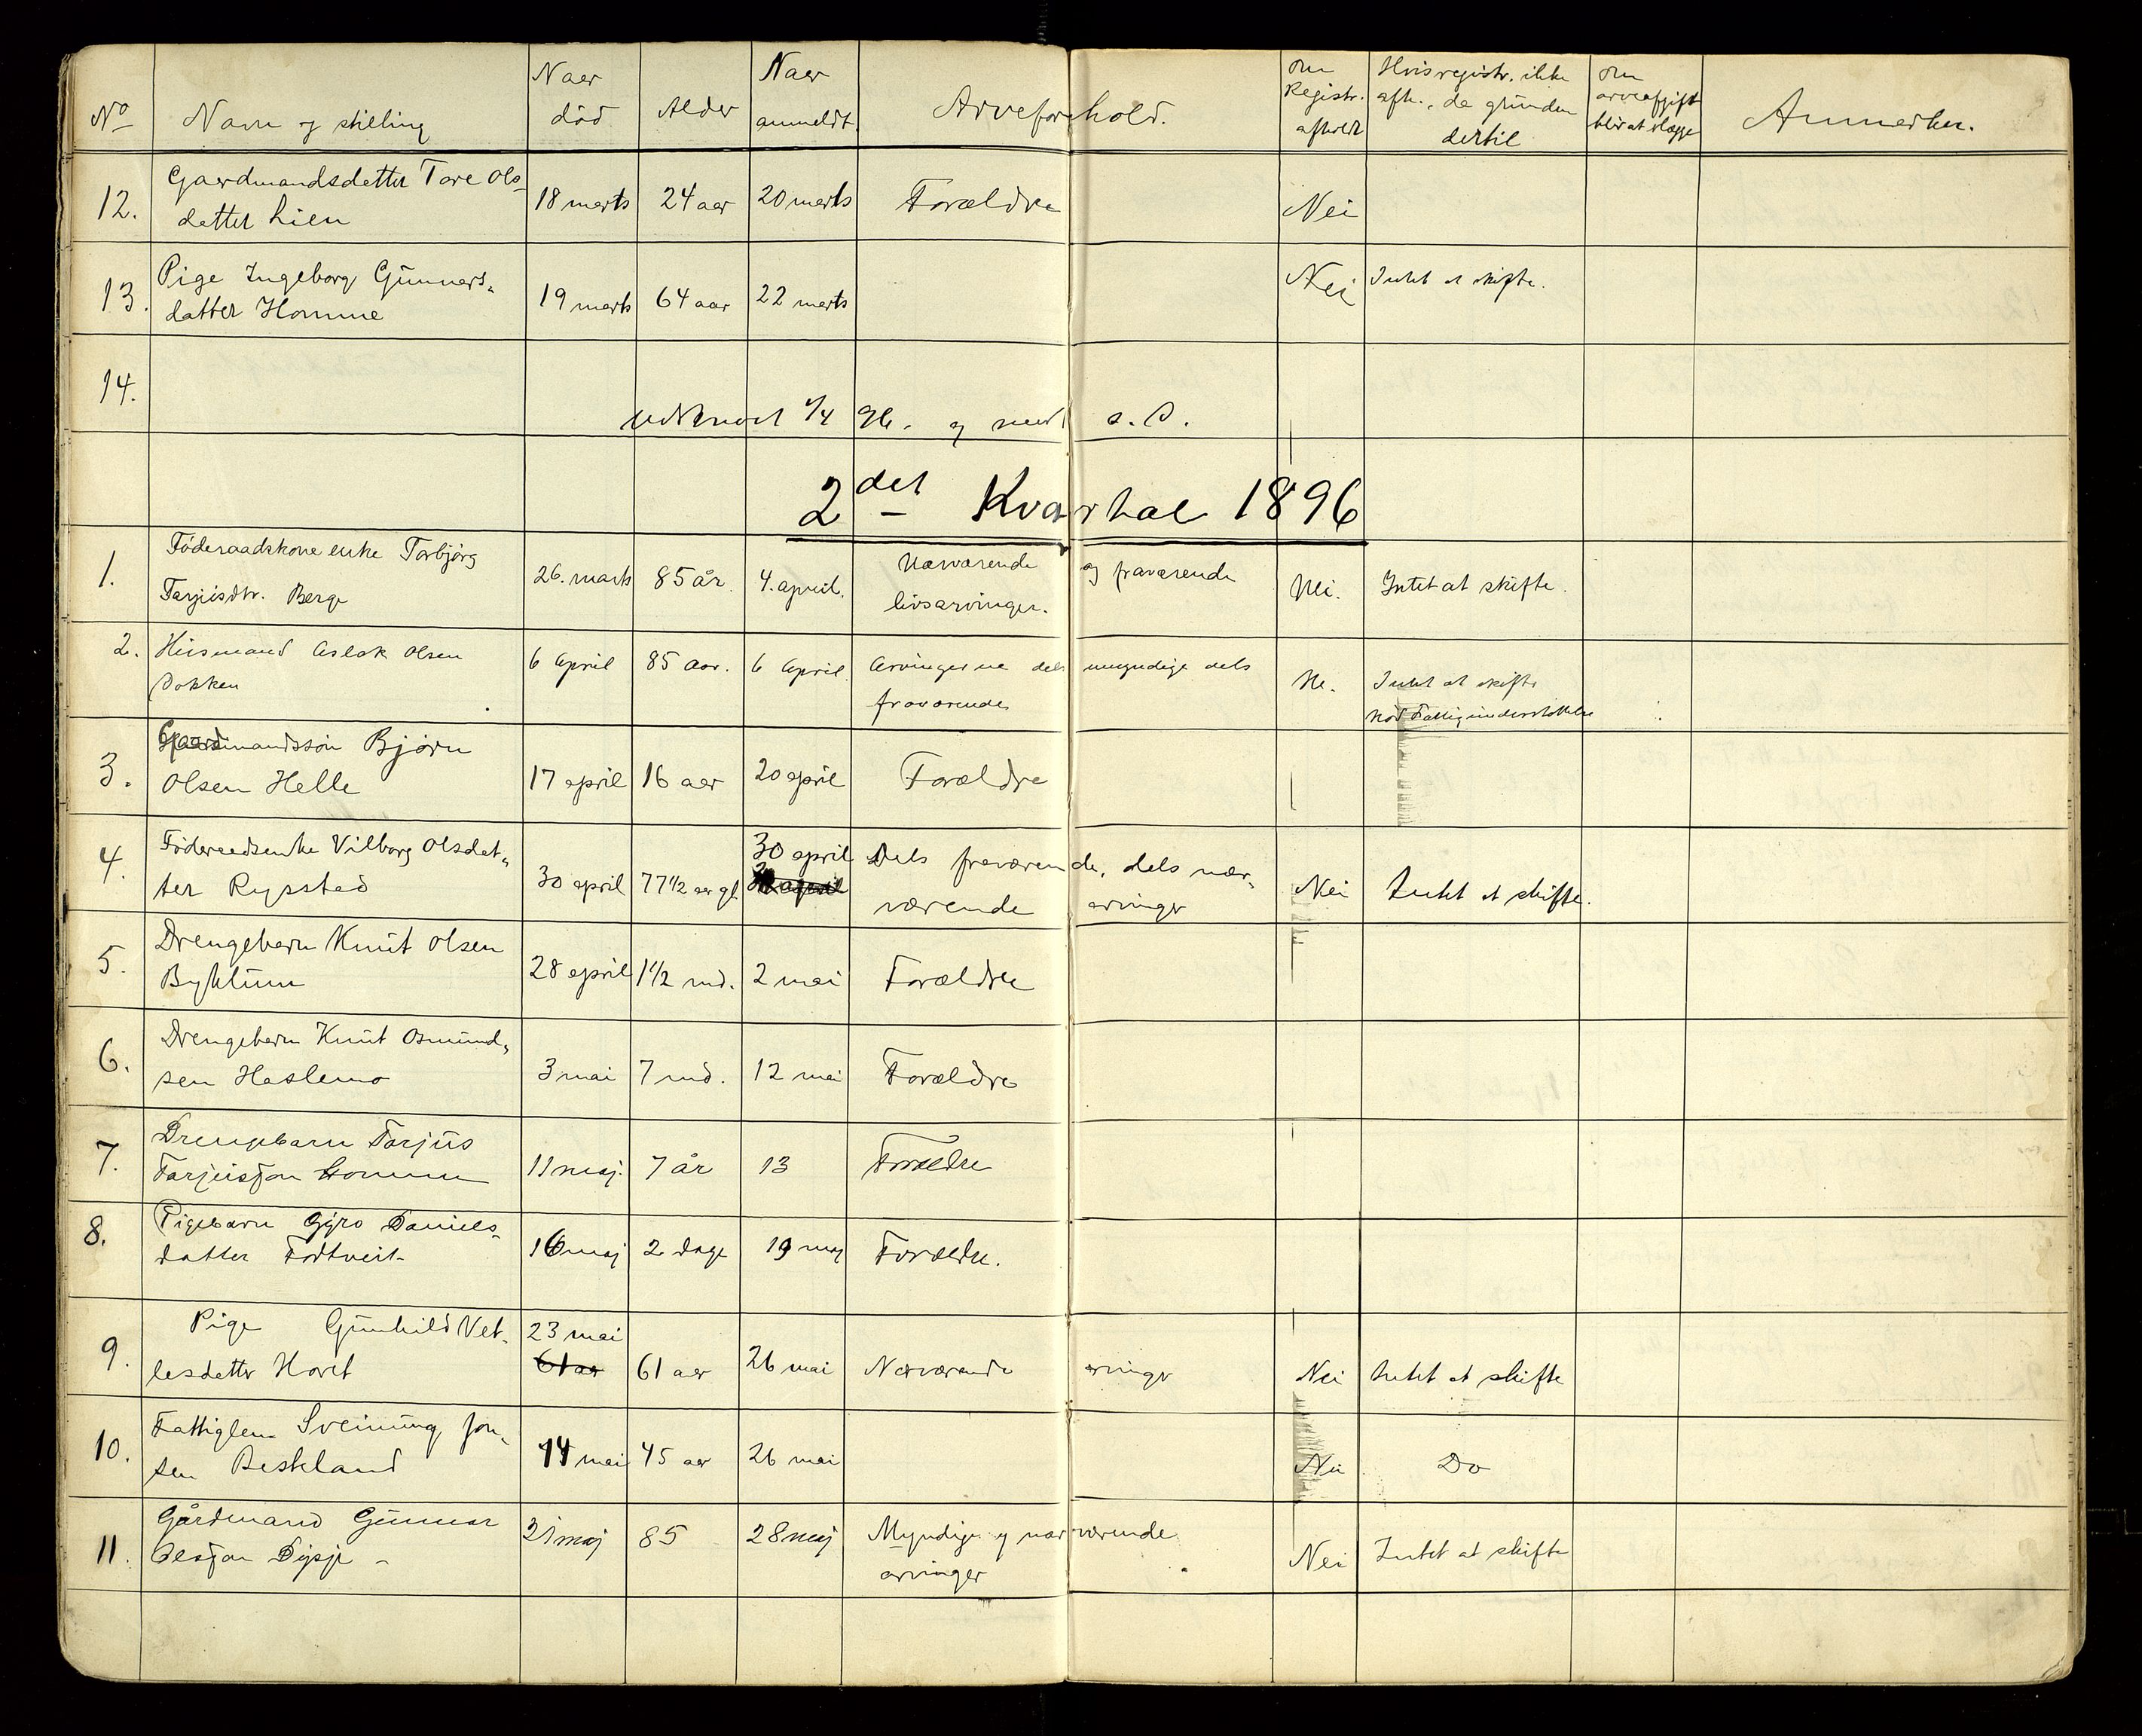 No Navn og stilling Naar död Alder Naar anmeldt. Arveforhold. Om Registr. afholdt Hvis registr. ikke afh., da grunden dertil Om arveafgift blir at ilægge Anmerkn.
12. Gaardmandsdatter Tore Ols-
datter Lien 18 marts 24 aar 20 marts Forældre Nei
13. Pige Ingeborg Gunnars-
datter Homme 19 marts 64 aar 22 marts Nei Intet at skifte.
14.
Udskrevet 1/4 96. og sendt s. D.
2det Kvartal 1896
1. Föderaadskone enke Torbjörg
Tarjeisdtr. Berge 26. marts 85 år. 4. april. Nærværende og fraværende
livsarvinger. Nei. Intet at skifte.
2. Husmand Aslak Olsen
Dokken 6 April 85 Aar. 6 April. Arvingerne dels umyndige dels
fraværende Ne. Intet at skifte
nöd Fattigunderstöttelse
3. Gaardmandssön Björn
Olsen Helle 17 april 16 aar 20 april Forældre
4. Föderaadsenke Vilborg Olsdat-
ter Rysstad 30 april 77 1/2 aar gl. 30 april Dels fraværende, dels nær-
værende arvinger Nei Intet at skifte.
5. Drengebarn Knut Olsen
Byklum 28 april 1 1/2 md. 2 mai Forældre
6. Drengebarn Knut Osmund-
sen Haslemo 3 mai 7 md. 12 mai Forældre
7. Drengebarn Tarjus
Tarjeisson Homme 11 maj. 7 år 13 Forældre
8. Pigebarn Gyro Daniels-
datter Fodtveit 16 maj 2 dage 19 maj Forældre.
9. Pige Gunhild Vet-
lesdatter Horet 23 mai 61 aar 61 aar 26 mai Nærværende arvinger Nei Intet at skifte
10. Fattiglem Sveinung Jon-
sen Beskland 14 mai 45 aar 26 mai Nei Do
11. Gårdmand Gunnar
Olsson 21 maj 85 28 maj Myndige og nærværende
arvinger Nei Intet at skifte